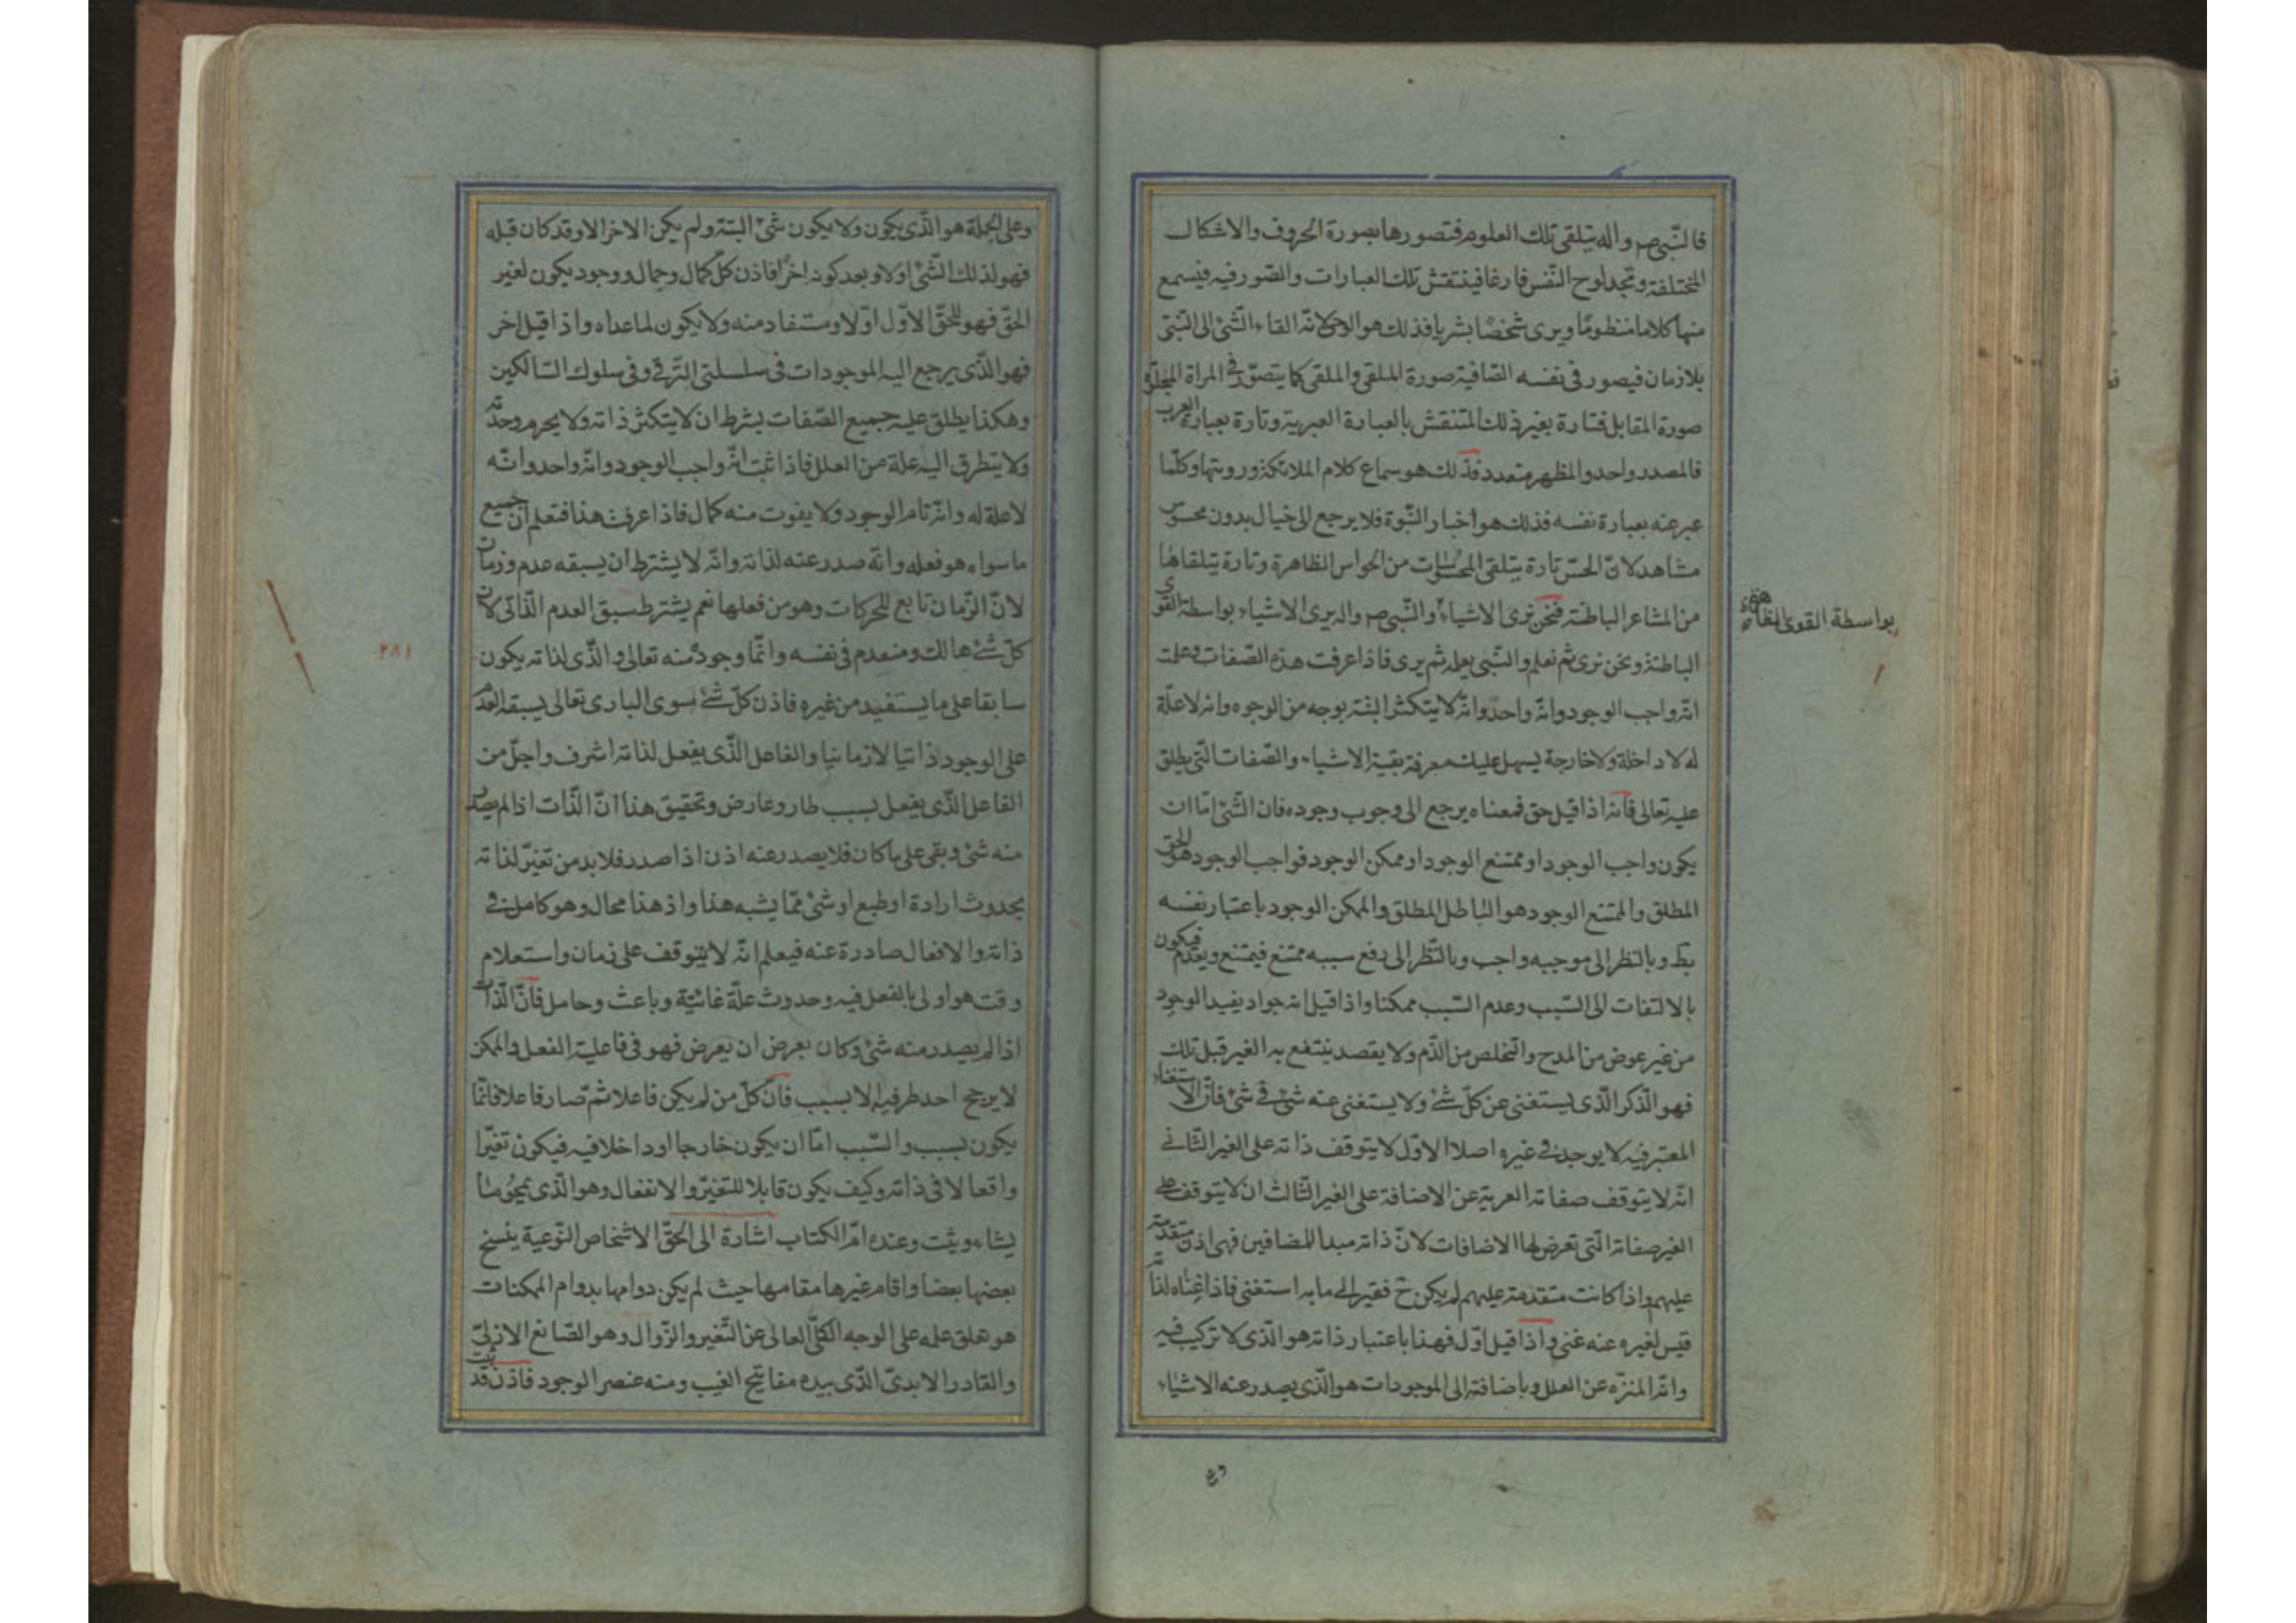 فالنّبى ص واله يتلقى تلك العلوم فتصورها بصورة الحروف والاشكال
المختلفة وتجد لوح النّفس فارغا فينتقش تلك العبارات والصّور فيه فيسمع
منها كلاما منظومًا ويرى شخصًا بشريا فذلك هو الوحى لانّه القاء الشّئ الى النّبى
بلازمان فيصور فى نفسه الصّافية صورة الملقى والملقى كما يتصوّر فى المراة المجلّوة
صورة المقابل فتارة يعبر ذلك المنتقش بالعبارة العبرية وتارة بعبارة العرب
فالمصدر واحد والمظهر متعدد فذلك هو سماع كلام الملائكة ورويتها وكلّما
عبر عنه بعبارة نفسه فذلك هو اخبار النّبوة فلا يرجع الى خيال بدون محسوس
مشاهد لانّ الحسّ تارة يتلقى المحسوسات من الحواس الظاهرة وتارة يتلقاها
من المشاعر الباطنة فنحن نرى الاشياء والنّبى ص واله يرى الاشياء بواسطة القوى
بواسطة القوى الظاهرة
الباطنة ونحن نرى ثم نعلم والنّبى يعلم ثم يرى فاذا عرفت هذه الصّفات وعلمت
انّه واجب الوجود وانّه واحد وانّه لا يتكثر البتة بوجه من الوجوه وانه لا علّة
له لا داخلة ولا خارجة يسهل عليك معرفة بقية الاشياء والصّفات الّتى يطلق
عليه تعالى فانه اذا قيل حق فمعناه يرجع الى وجوب وجوده فان الشّئ امّا ان
يكون واجب الوجود او ممتنع الوجود او ممكن الوجود فواجب الوجود هو الحق
المطلق والممتنع الوجود هو الباطل المطلق والممكن الوجود باعتبار نفسه
بط وبالنظر الى موجبه واجب وبالنّظر الى رفع سببه ممتنع فيمتنع ويعدم فيكون
بالالتفات الى السّبب وعدم السّبب ممكنا واذا قيل انه جواد يفيد الوجود
من غير عوض من المدح والتخلص من الذّم ولا يقصد ينتفع به الغير قبل تلك
فهو الّذكر الّذى يستغنى عن كلّ شئ ولا يستغنى عنه شئ فى شئ فانّ الاستغناء
المعتبر فيه لا يوجد فى غيره اصلا الاوّل لا يتوقف ذاته على الغير الثّانى
انّه لا يتوقف صفاته العرية عن الاضافة على الغير الثّالث ان لا يتوقف على
الغير صفاته الّتى تعرض لها الاضافات لانّ ذاته مبدا للمضافين فهى اذن متقدمة
عليهم واذا كانت متقدمة عليهم لم يكن ح فقير الى ما به استغنى فاذا غناه لذاته
فليس لغيره عنه غنى واذا قيل اوّل فهذا باعتبار ذاته هو الّذى لا تركيب فيه
وانّه المنزّه عن العلل وباضافته الى الموجودات هو الّذى يصدر عنه الاشياء
وعلى الجملة هو الّذى يكون ولا يكون شئ البتة ولم يكن الاخر الا وقد كان قبله
فهو لذلك الشّئ اولا وبعد كونه اخرًا فاذن كلّ كمال وجمال ووجود يكون لغير
الحقّ فهو للحقّ الاوّل اوّلا ومستفاد منه ولا يكون لما عداه واذا قيل اخر
فهو الّذى يرجع اليه الموجودات فى سلسلتى التّرقى وفى سلوك السّالكين
وهكذا يطلق عليه جميع الصّفات بشرط ان لا يتكثر ذاته ولا يحرم وحدته
ولا يتطرق اليه علة من العلل فاذا ثبت انّه واجب الوجود وانّه واحد وانّه
لا علة له وانّه تام الوجود ولا يفوت منه كمال فاذا عرفت هذا فتعلم انّ جميع
ما سواه هو فعله وانّه صدر عنه لذاته وانّه لا يشترط ان يسبقه عدم وزمان
لانّ الزّمان تابع للحركات وهو من فعلها نعم يشترط سبق العدم الذّاتى لان
كلّ شئ هالك ومنعدم فى نفسه وانّما وجوده منه تعالى والّذى لذاته يكون
٢٨١
سابقا على ما يستفيد من غيره فاذن كلّ شئ سوى البارى تعالى يسبقه العدم
على الوجود ذاتيا لا زمانيا والفاعل الّذى يفعل لذاته اشرف واجلّ من
الفاعل الّذى يفعل بسبب طار وعارض وتحقيق هذا انّ الذّات اذا لم يصدر
منه شئ وبقى على ما كان فلا يصدر عنه اذن اذا صدر فلابد من تغيّر لذاته
بحدوث ارادة او طبع او شئ ممّا يشبه هذا واذ هذا محال وهو كامل فى
ذاته والافعال صادرة عنه فيعلم انّه لا يتوقف على زمان واستعلام
وقت هو اولى بالفعل فيه وحدوث علّة غائية وباعث وحامل فانّ الذّات
اذا لم يصدر منه شئ وكان بعرض ان يعرض فهو فى فاعلية الفعل والممكن
لا يرجح احد طرفيه الا بسبب فانّ كلّ من لم يكن فاعلا ثمّ صار فاعلا فانّما
يكون بسبب والسّبب امّا ان يكون خارجا او داخلا فيه فيكون تغيّرا
واقعا لا فى ذاته وكيف يكون قابلا للتغيّر والانفعال وهو الّذى يمحو ما
يشاء ويثبت وعنده امّ الكتاب اشارة الى الحقّ الاشخاص النّوعية ينسخ
بعضها بعضا واقام غيرها مقامها حيث لم يكن دوامها بدوام الممكنات
هو تعلق علمه على الوجه الكلّى العالى عن التّغير والزّوال وهو الصّانع الازلىّ
والقادر الابدىّ الّذى بيده مفاتيح الغيب ومنه عنصر الوجود فاذن قد ثبت